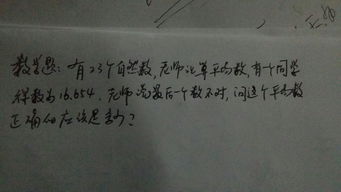 数学题：有23个自然数，老师让算平均数，有一个同学
得数为16.654．老师说最后一个数不对，问这个平均数
正确的应该是多少？